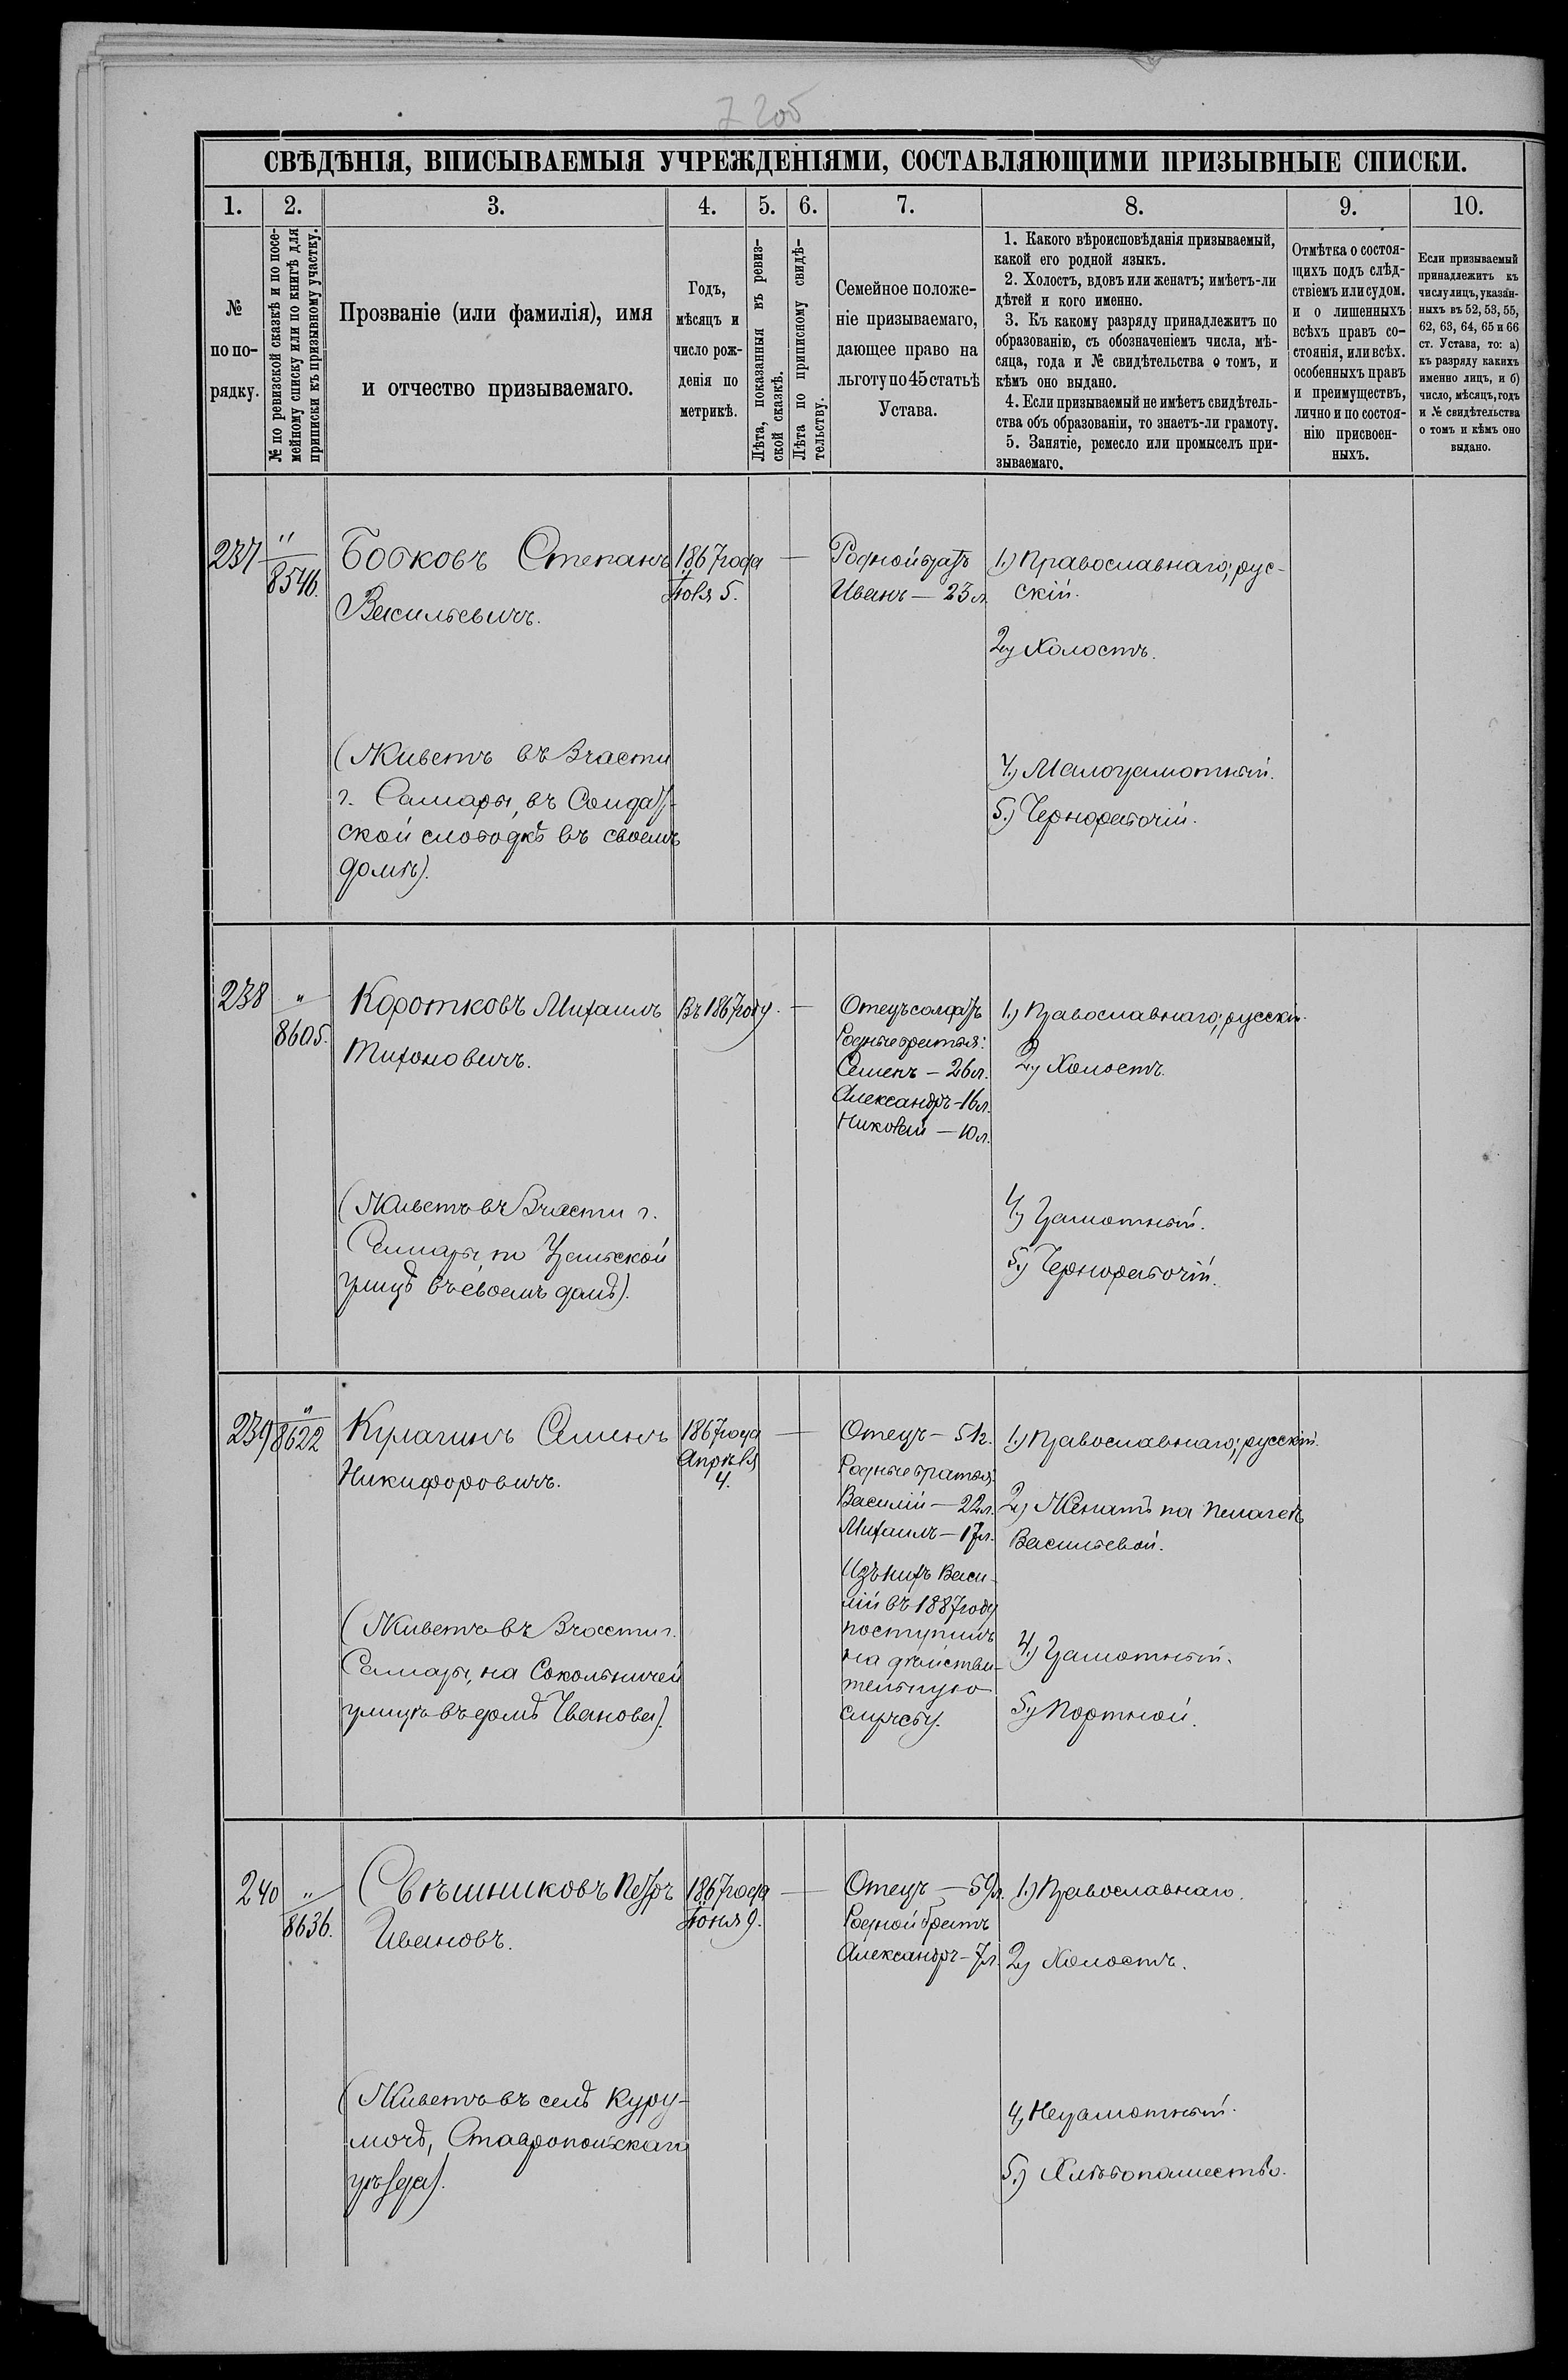 СВѢДѢНІЯ, ВПИСЫВАЕМЫЯ УЧРЕЖДЕНІЯМИ, СОСТАВЛЯЮЩИМИ ПРИЗЫВНЫЕ СПИСКИ.
1.
2.
3.
4.
5.
6.
7.
8.
9.
10.
№
по по-
рядку.
№ по ревизской сказкѣ и по посе-
мейному списку или по книгѣ для
приписки къ призывному участку.
Прозваніе (или фамилія), имя
и отчество призываемаго.
Годъ,
мѣсяцъ и
число рож-
денія по
метрикѣ.
Лѣта, показанныя въ ревиз-
ской сказкѣ.
Лѣта по приписному свидѣ-
тельству.
Семейное положе-
ніе призываемаго,
дающее право на
льготу по 45 статьѣ
Устава.
1. Какого вѣроисповѣданія призываемый,
какой его родной языкъ.
2. Холостъ, вдовъ или женатъ; имѣетъ-ли
дѣтей и кого именно.
3. Къ какому разряду принадлежитъ по
образованію, съ обозначеніемъ числа, мѣ-
сяца, года и № свидѣтельства о томъ, и
кѣмъ оно выдано.
4. Если призываемый не имѣетъ свидѣтель-
ства объ образованіи, то знаетъ-ли грамоту.
5. Занятіе, ремесло или промыселъ при-
зываемаго.
Отмѣтка о состоя-
щихъ подъ слѣд-
ствіемъ или судом.
и о лишенныхъ
всѣхъ правъ со-
стоянія, или всѣх.
особенныхъ правъ
и преимуществъ,
лично и по состоя-
нію присвоен-
ныхъ.
Если призываемый
принадлежитъ къ
числу лицъ, указан-
ныхъ въ 52, 53, 55,
62, 63, 64, 65 и 66
ст. Устава, то: а)
къ разряду какихъ
именно лицъ, и б)
число, мѣсяцъ, годъ
и № свидѣтельства
о томъ и кѣмъ оно
выдано.
237
"
8546.
Бобковъ Степанъ
Васильевичъ.
(Живетъ въ 3 части
г. Самары, въ Солдат-
ской слободкѣ въ своемъ
домѣ).
1867 года
Іюля 5.
—
Родной братъ
Иванъ — 23 л.
1.) Православнаго; рус-
скій.
2.) Холостъ.
4.) Малограмотный.
5.) Чернорабочій.
238
"
8605.
Коротковъ Михаилъ
Тихоновичъ.
(Живетъ въ 3 части г.
Самары, по Уральской
улицѣ въ своемъ домѣ).
Въ 1867 году.
—
Отецъ солдатъ
Родные братья:
Семенъ — 26 л.
Александръ — 16 л.
Николай — 10 л.
1.) Православнаго; русскій.
2.) Холостъ.
4.) Грамотный.
5.) Чернорабочій.
239
"
8622
Кулагинъ Семенъ
Никифоровичъ.
(Живетъ въ 3 части г.
Самары, на Сокольничей
улицѣ въ домѣ Иванова).
1867 года
Апрѣля
4.
—
Отецъ — 51 г.
Родные братья:
Василій — 22 л.
Михаилъ — 17 л.
Изъ нихъ Васи-
лій въ 1887 году
поступилъ
на дѣйстви-
тельную
службу.
1.) Православнаго; русскій.
2.) Женатъ на Пелагеѣ
Васильевой.
4.) Грамотный.
5.) Портной.
240
"
8636.
Свѣшниковъ Петръ
Ивановъ.
(Живетъ въ селѣ Куру-
мочѣ, Ставропольскаго
уѣзда).
1867 года
Іюня 9.
—
Отецъ — 59 л.
Родной братъ
Александръ — 7 л.
1.) Православнаго.
2.) Холостъ.
4.) Неграмотный.
5.) Хлѣбопашество.